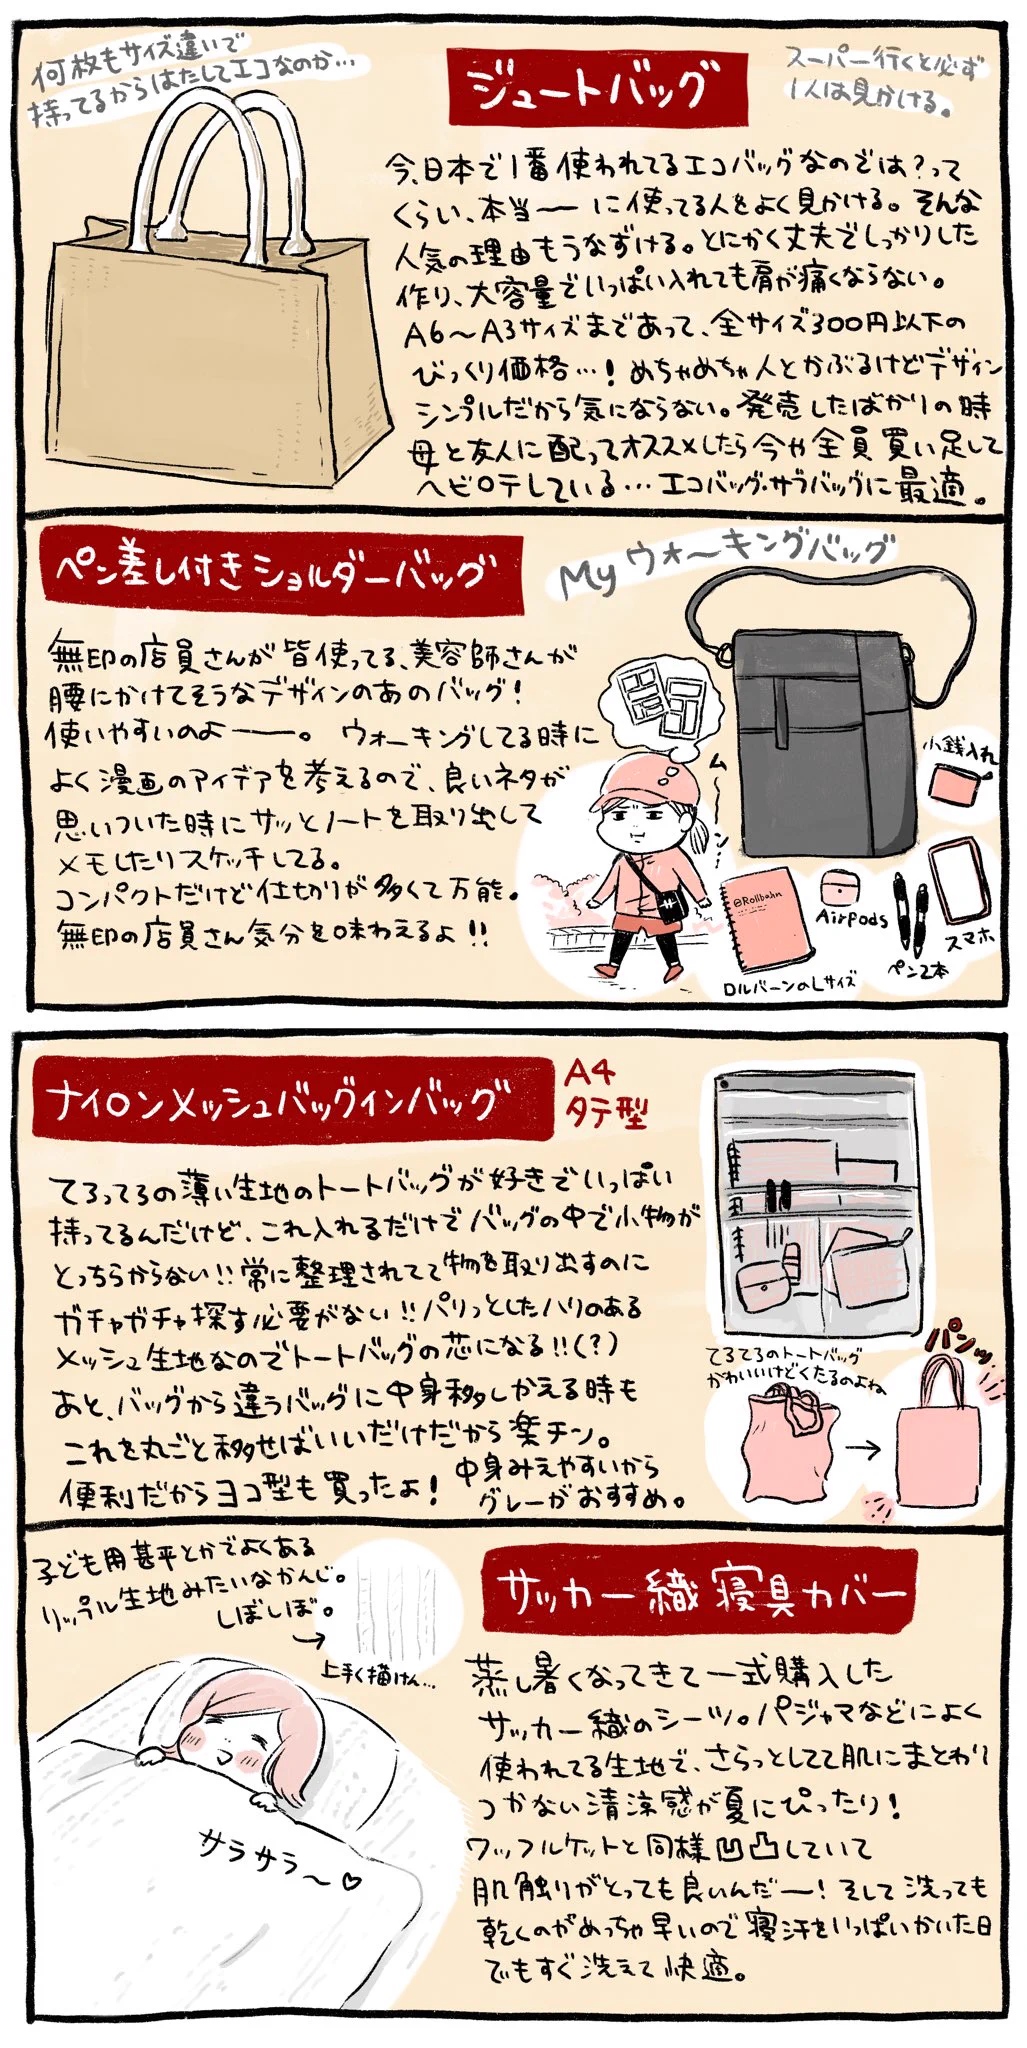 何枚もサイズ違いで
持ってるからはたしてエコなのか…
ジュートバッグ
スーパー行くと必ず
1人は見かける。
今、日本で1番使われてるエコバッグなのでは?って
くらい、本当──に使ってる人をよく見かける。そんな
人気の理由もうなずける。とにかく丈夫でしっかりした
作り、大容量でいっぱい入れても肩が痛くならない。
A6〜A3サイズまであって、全サイズ300円以下の
びっくり価格…!めちゃめちゃ人とかぶるけどデザイン
シンプルだから気にならない。発売したばかりの時
母と友人に配ってオススメしたら今や全員買い足して
ヘビロテしている…エコバッグ・サブバッグに最適。
ペン差し付きショルダーバッグ
Myウォ〜キングバッグ
無印の店員さんが皆使ってる、美容師さんが
腰にかけてそうなデザインのあのバッグ!
使いやすいのよ──。ウォーキングしてる時に
よく漫画のアイデアを考えるので、良いネタが
思いついた時にサッとノートを取り出して
メモしたりスケッチしてる。
コンパクトだけど仕切りが多くて万能。
無印の店員さん気分を味わえるよ!!
ム〜〜ン…
小銭入れ
@Rollbahn
AirPods
ロルバーンのLサイズ
ペン2本
スマホ
ナイロンメッシュバッグインバッグ
A4
タテ型
てろってろの薄い生地のトートバッグが好きでいっぱい
持ってるんだけど、これ入れるだけでバッグの中で小物が
とっちらからない!!常に整理されてて物を取り出すのに
ガチャガチャ探す必要がない!!パリっとしたハリのある
メッシュ生地なのでトートバッグの芯になる!!(?)
あと、バッグから違うバッグに中身移しかえる時も
これを丸ごと移せばいいだけだから楽チン。
便利だからヨコ型も買ったよ!
中身みえやすいから
グレーがおすすめ。
てろてろのトートバッグ
かわいいけどくたるのよね
→
パンッ
子ども用甚平とかでよくある
リップル生地みたいなかんじ。
しぼしぼ。
→
上手く描けん…
サッカー織寝具カバー
蒸し暑くなってきて一式購入した
サッカー織のシーツ。パジャマなどによく
使われてる生地で、さらっとしてて肌にまとわり
つかない清涼感が夏にぴったり!
ワッフルケットと同様凹凸していて
肌触りがとっても良いんだ──!そして洗っても
乾くのがめっちゃ早いので寝汗をいっぱいかいた日
でもすぐ洗えて快適。
サラサラ〜♡